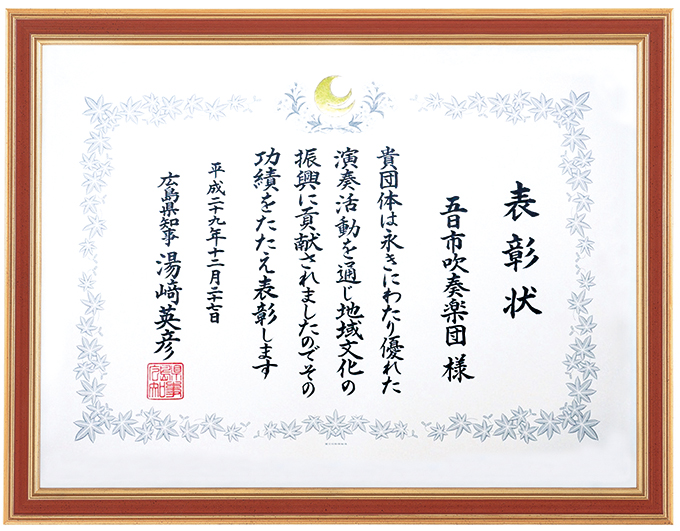 表彰状
五日市吹奏楽団 様
貴団体は永きにわたり優れた
演奏活動を通じ地域文化の
振興に貢献されましたのでその
功績をたたえ表彰します
平成二十九年十二月二十七日
広島県知事 湯﨑英彦